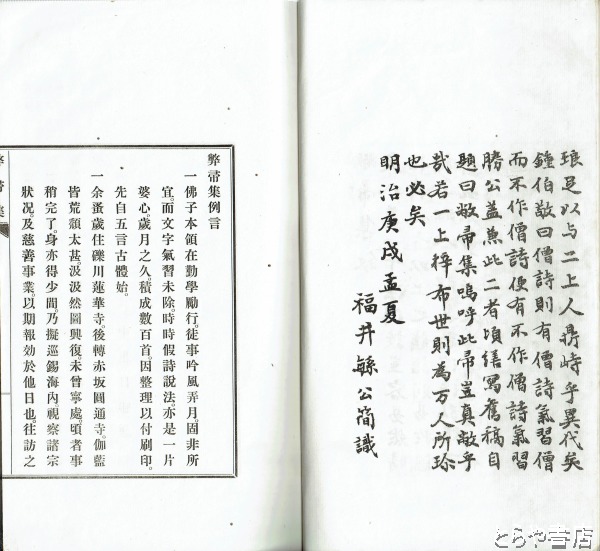 琅足以与二上人鼎峙乎異代矣
鍾伯敬曰僧詩則有僧詩氣習僧
而不作僧詩便有不作僧詩氣習
勝公蓋兼此二者頃繕寫舊稿自
題曰敝帚集嗚呼此帚豈真敝乎
哉若一上梓布世則為万人所珍
也必矣
明治庚戌孟夏
福井繇公簡識
弊帚集例言
一佛子本領在勤學勵行。徒事吟風弄月。固非所
宜。而文字氣習未除。時時假詩說法。亦是一片
婆心。歲月之久。積成數百首。因整理以付刷印。
先自五言古體始。
一余蚤歲住礫川蓮華寺。後轉赤坂圓通寺。伽藍
皆荒頽太甚。汲汲然圖興復。未曾寧處。頃者事
稍完了。身亦得少間。乃擬巡錫海內視察諸宗
狀况。及慈善事業。以期報効於他日也。往訪之
弊帚集
とらや書店